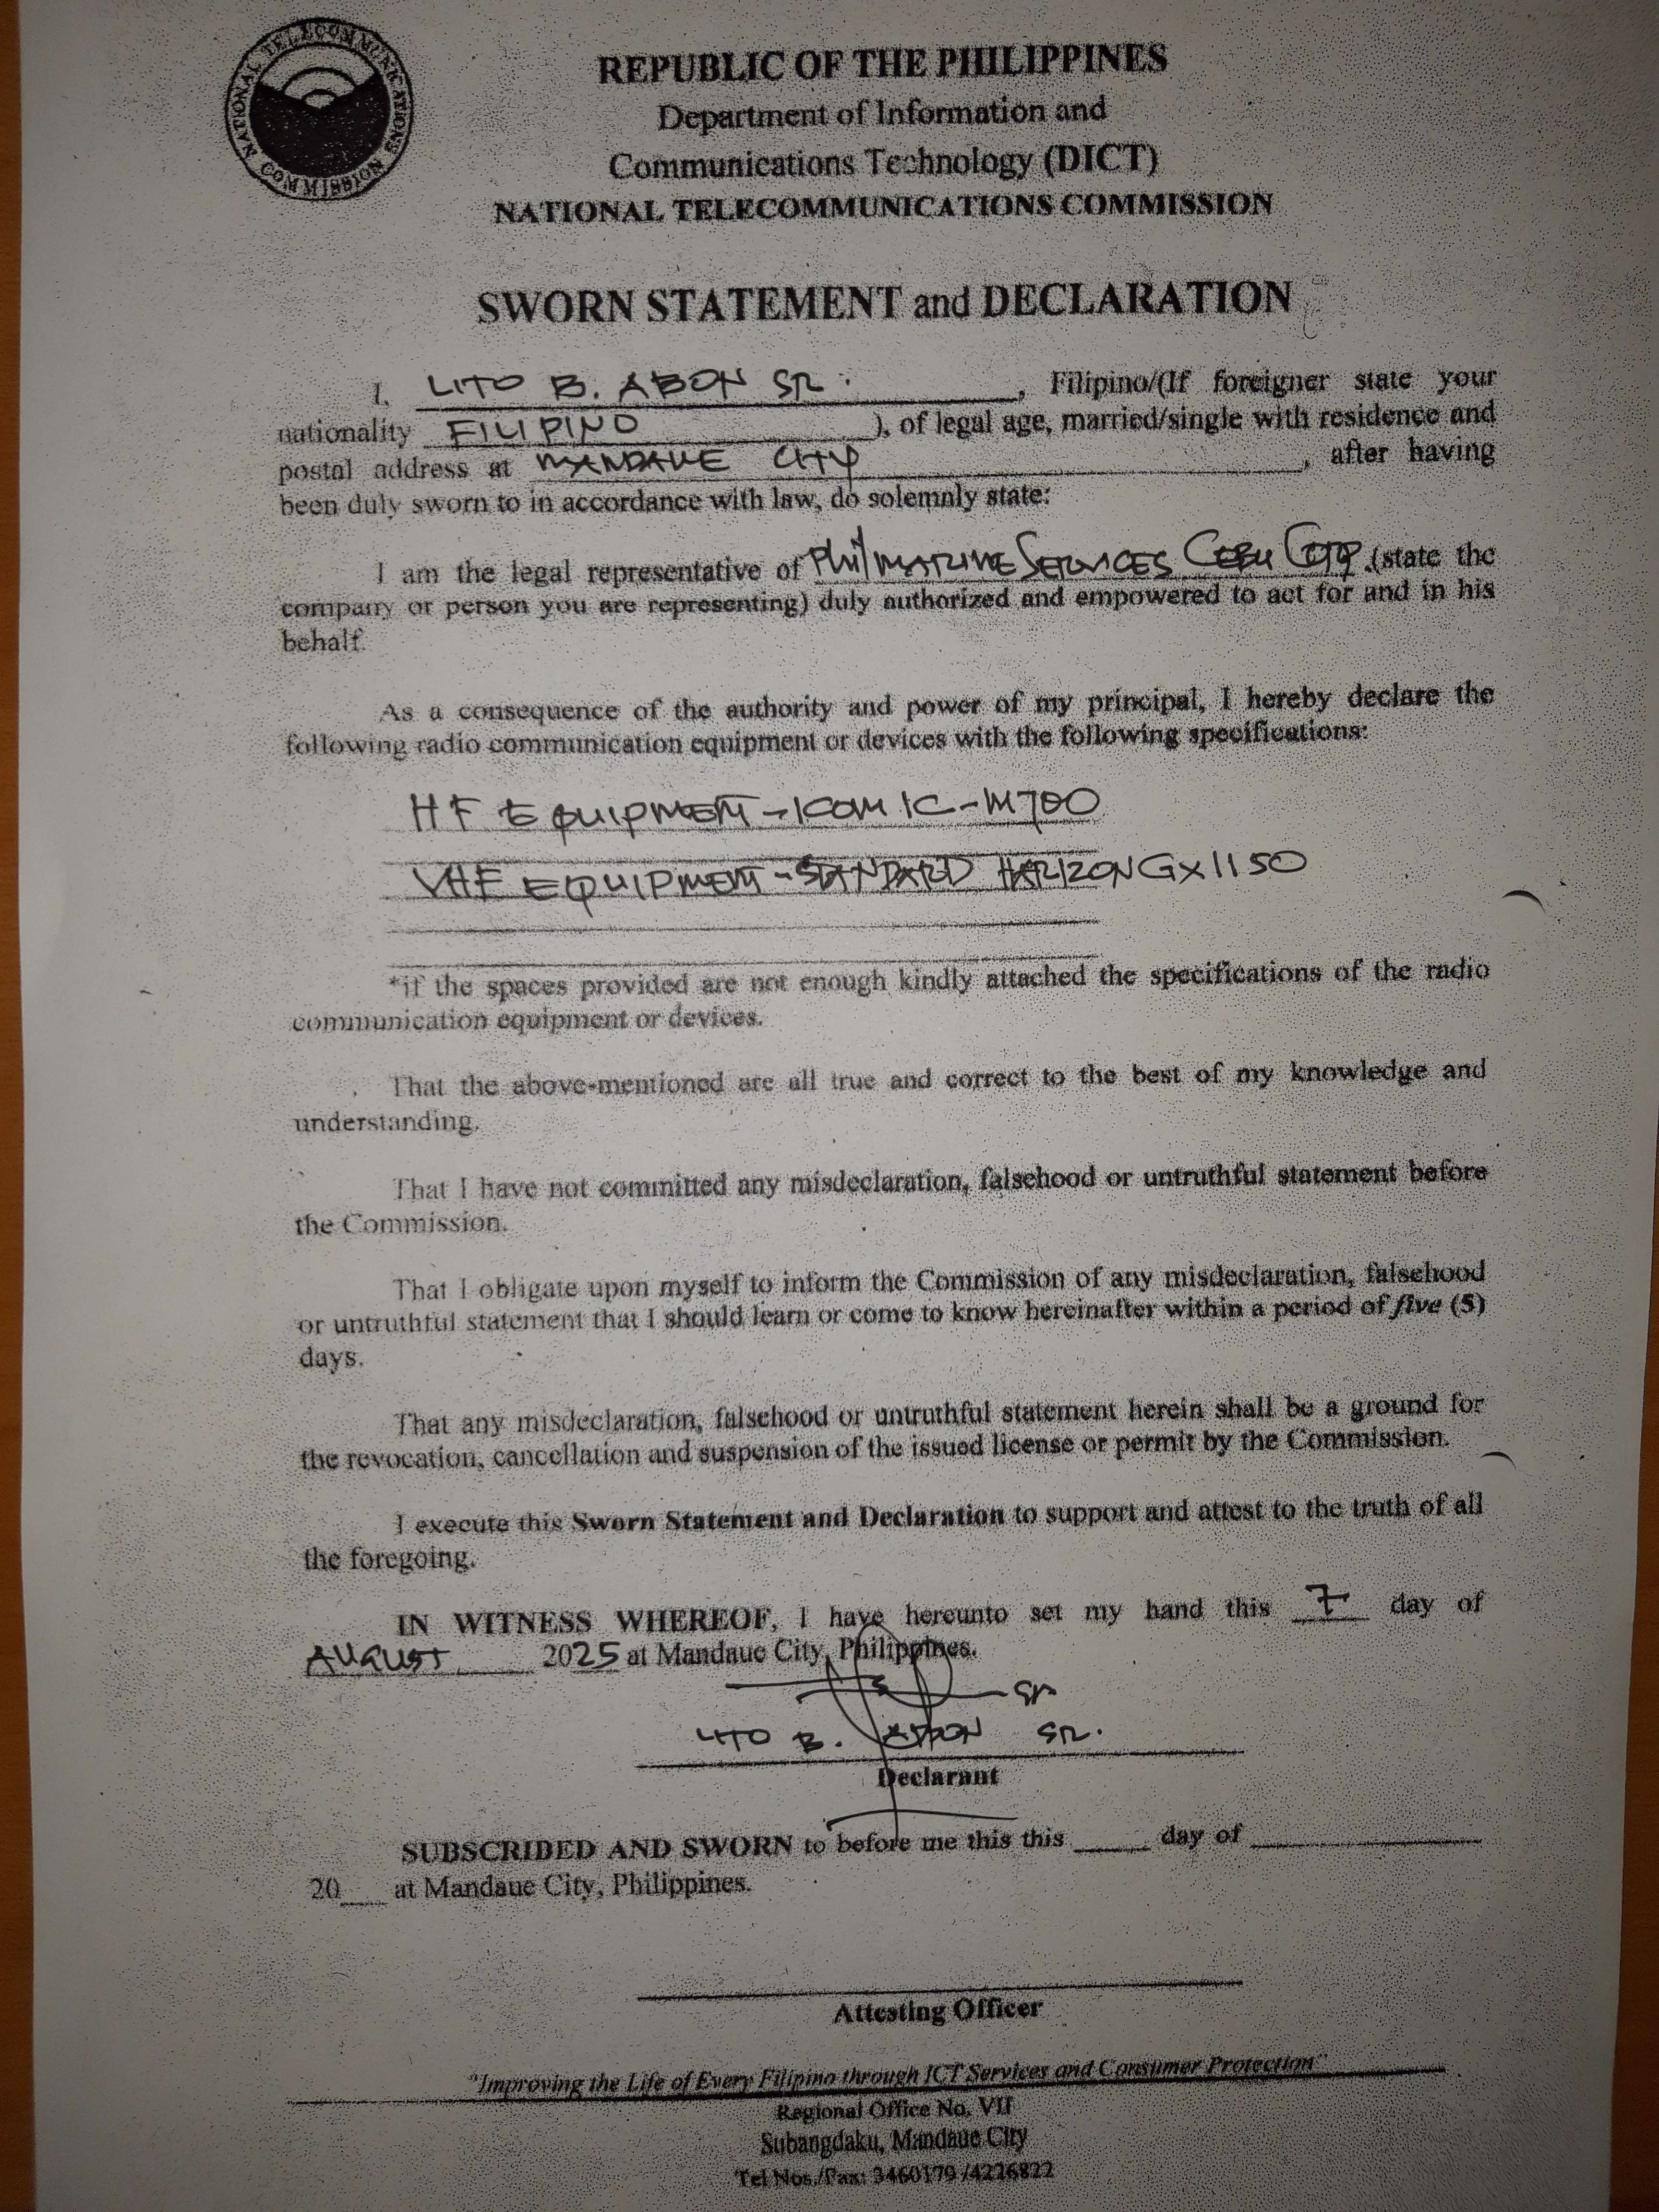 NATIONAL TELECOMMUNICATIONS COMMISSION
REPUBLIC OF THE PHILIPPINES
Department of Information and
Communications Technology (DICT)
NATIONAL TELECOMMUNICATIONS COMMISSION
SWORN STATEMENT and DECLARATION
I, LITO B. ABON SR. , Filipino/(If foreigner state your
nationality FILIPINO ), of legal age, married/single with residence and
postal address at MANDAUE CITY , after having
been duly sworn to in accordance with law, do solemnly state:
I am the legal representative of Phil MARINE SERVICES CEBU CORP. (state the
company or person you are representing) duly authorized and empowered to act for and in his
behalf.
As a consequence of the authority and power of my principal, I hereby declare the
following radio communication equipment or devices with the following specifications:
HF EQUIPMENT - ICOM IC-M700
VHF EQUIPMENT - STANDARD HARIZON GX1150
*if the spaces provided are not enough kindly attached the specifications of the radio
communication equipment or devices.
That the above-mentioned are all true and correct to the best of my knowledge and
understanding.
That I have not committed any misdeclaration, falsehood or untruthful statement before
the Commission.
That I obligate upon myself to inform the Commission of any misdeclaration, falsehood
or untruthful statement that I should learn or come to know hereinafter within a period of five (5)
days.
That any misdeclaration, falsehood or untruthful statement herein shall be a ground for
the revocation, cancellation and suspension of the issued license or permit by the Commission.
I execute this Sworn Statement and Declaration to support and attest to the truth of all
the foregoing.
IN WITNESS WHEREOF, I have hereunto set my hand this 7 day of
AUGUST 2025 at Mandaue City, Philippines.
LITO B. ABON SR.
Declarant
SUBSCRIBED AND SWORN to before me this this ____ day of ____
20__ at Mandaue City, Philippines.
Attesting Officer
"Improving the Life of Every Filipino through ICT Services and Consumer Protection"
Regional Office No. VII
Subangdaku, Mandaue City
Tel Nos./Fax: 3460179 /4226822